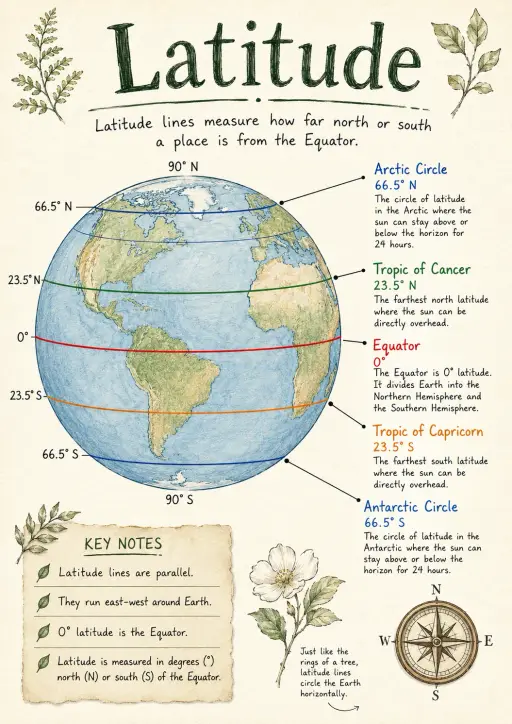 Latitude
Latitude lines measure how far north or south
a place is from the Equator.
90° N
66.5° N
23.5° N
0°
23.5° S
66.5° S
90° S
Arctic Circle
66.5° N
The circle of latitude
in the Arctic where the
sun can stay above or
below the horizon for
24 hours.
Tropic of Cancer
23.5° N
The farthest north latitude
where the sun can be
directly overhead.
Equator
0°
The Equator is 0° latitude.
It divides Earth into the
Northern Hemisphere and
the Southern Hemisphere.
Tropic of Capricorn
23.5° S
The farthest south latitude
where the sun can be
directly overhead.
Antarctic Circle
66.5° S
The circle of latitude in the
Antarctic where the sun can
stay above or below the
horizon for 24 hours.
KEY NOTES
Latitude lines are parallel.
They run east-west around Earth.
0° latitude is the Equator.
Latitude is measured in degrees (°)
north (N) or south (S) of the Equator.
Just like the
rings of a tree,
latitude lines
circle the Earth
horizontally.
N
W
E
S